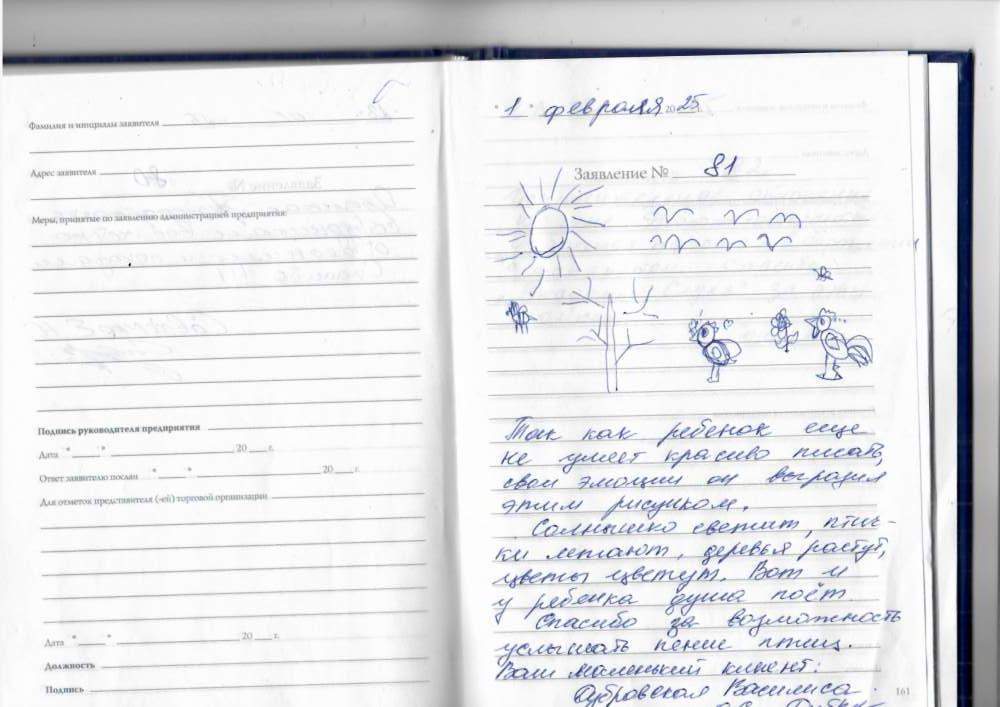 Фамилия и инициалы заявителя
Адрес заявителя
Меры, принятые по заявлению администрацией предприятия:
Подпись руководителя предприятия
Дата " " 20 г.
Ответ заявителю послан " " 20 г.
Для отметок представителя (-ей) торговой организации
Дата " " 20 г.
Должность
Подпись
"1" февраля 2025 г.
Заявление № 81
Так как ребенок еще
не умеет красиво писать,
свои эмоции он выразил
этим рисунком.
Солнышко светит, птич-
ки летают, деревья растут,
цветы цветут. Вот и
у ребенка душа поёт
Спасибо за возможность
услышать пение птиц.
Ваш маленький клиент:
Дубровская Василиса
161